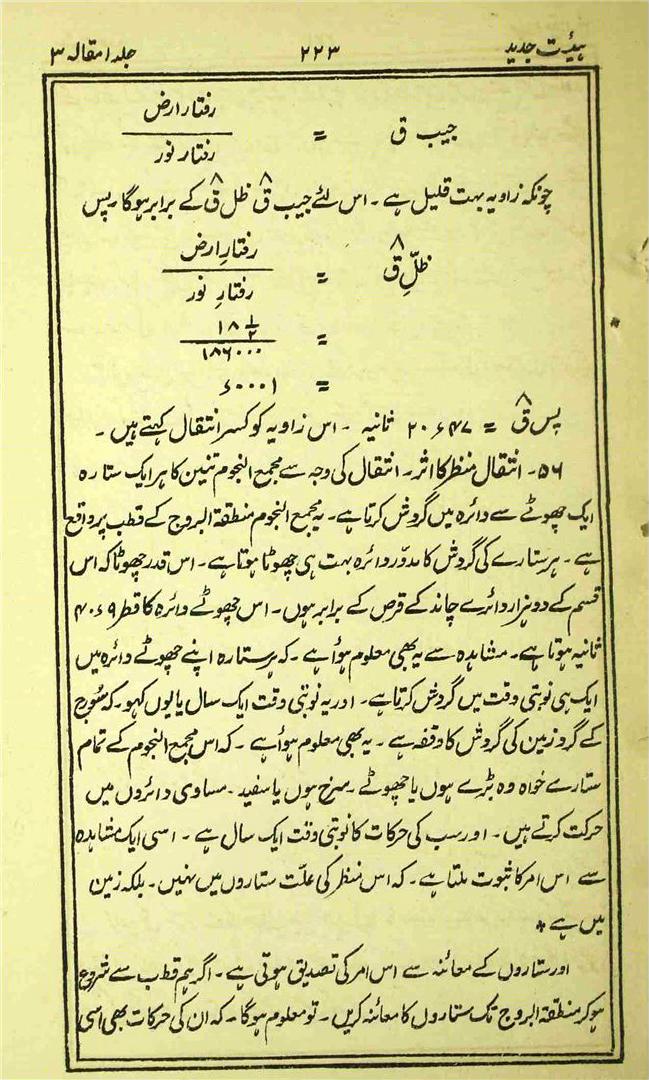 ہیٔت جدید ۲۲۳ جلد ۱ مقالہ ۳
جیب ق = رفتار ارض / رفتار نور
چونکہ زاویہ بہت قلیل ہے ۔ اس لئے جیب ق^ ظل ق^ کے برابر ہوگا ۔ پس
ظلِّ ق^ = رفتارِ ارض / رفتارِ نور
= ۱۸ ۱/۲ / ۱۸۶۰۰۰
= ۰۰۰۱ء
پس ق^ = ۲۰ء۴۷ ثانیہ ۔ اس زاویہ کو کسر انتقال کہتے ہیں ۔
۵۶ ۔ انتقال منظر کا اثر ۔ انتقال کی وجہ سے مجمع النجوم تنین کا ہر ایک ستارہ
ایک چھوٹے سے دائرہ میں گردش کرتا ہے ۔ یہ مجمع النجوم منطقۃ البروج کے قطب پر واقع
ہے ۔ ہر ستارے کی گردش کا مدوّر دائرہ بہت ہی چھوٹا ہوتا ہے ۔ اس قدر چھوٹا کہ اس
قسم کے دو ہزار دائرے چاند کے قرص کے برابر ہوں ۔ اس چھوٹے دائرہ کا قطر ۴۰ء۹
ثانیہ ہوتا ہے ۔ مشاہدہ سے یہ بھی معلوم ہوٴا ہے ۔ کہ ہر ستارہ اپنے چھوٹے دائرہ میں
ایک ہی نوبتی وقت میں گردش کرتا ہے ۔ اور یہ نوبتی وقت ایک سال یا یوں کہو ۔ کہ سُورج
کے گرد زمین کی گردش کا وقفہ ہے ۔ یہ بھی معلوم ہوٴا ہے ۔ کہ اس مجمع النجوم کے تمام
ستارے خواہ وہ بڑے ہوں یا چھوٹے ۔ سرخ ہوں یا سفید ۔ مساوی دائروں میں
حرکت کرتے ہیں ۔ اور سب کی حرکات کا نوبتی وقت ایک سال ہے ۔ اسی ایک مشاہدہ
سے اس امر کا ثبوت ملتا ہے ۔ کہ اس منظر کی علّت ستاروں میں نہیں ۔ بلکہ زمین
میں ہے *
اور ستاروں کے معائنہ سے اس امر کی تصدیق ہوتی ہے ۔ اگر ہم قطب سے شروع
ہو کر منطقۃ البروج تک ستاروں کا معائنہ کریں ۔ تو معلوم ہوگا ۔ کہ ان کی حرکات بھی اسی